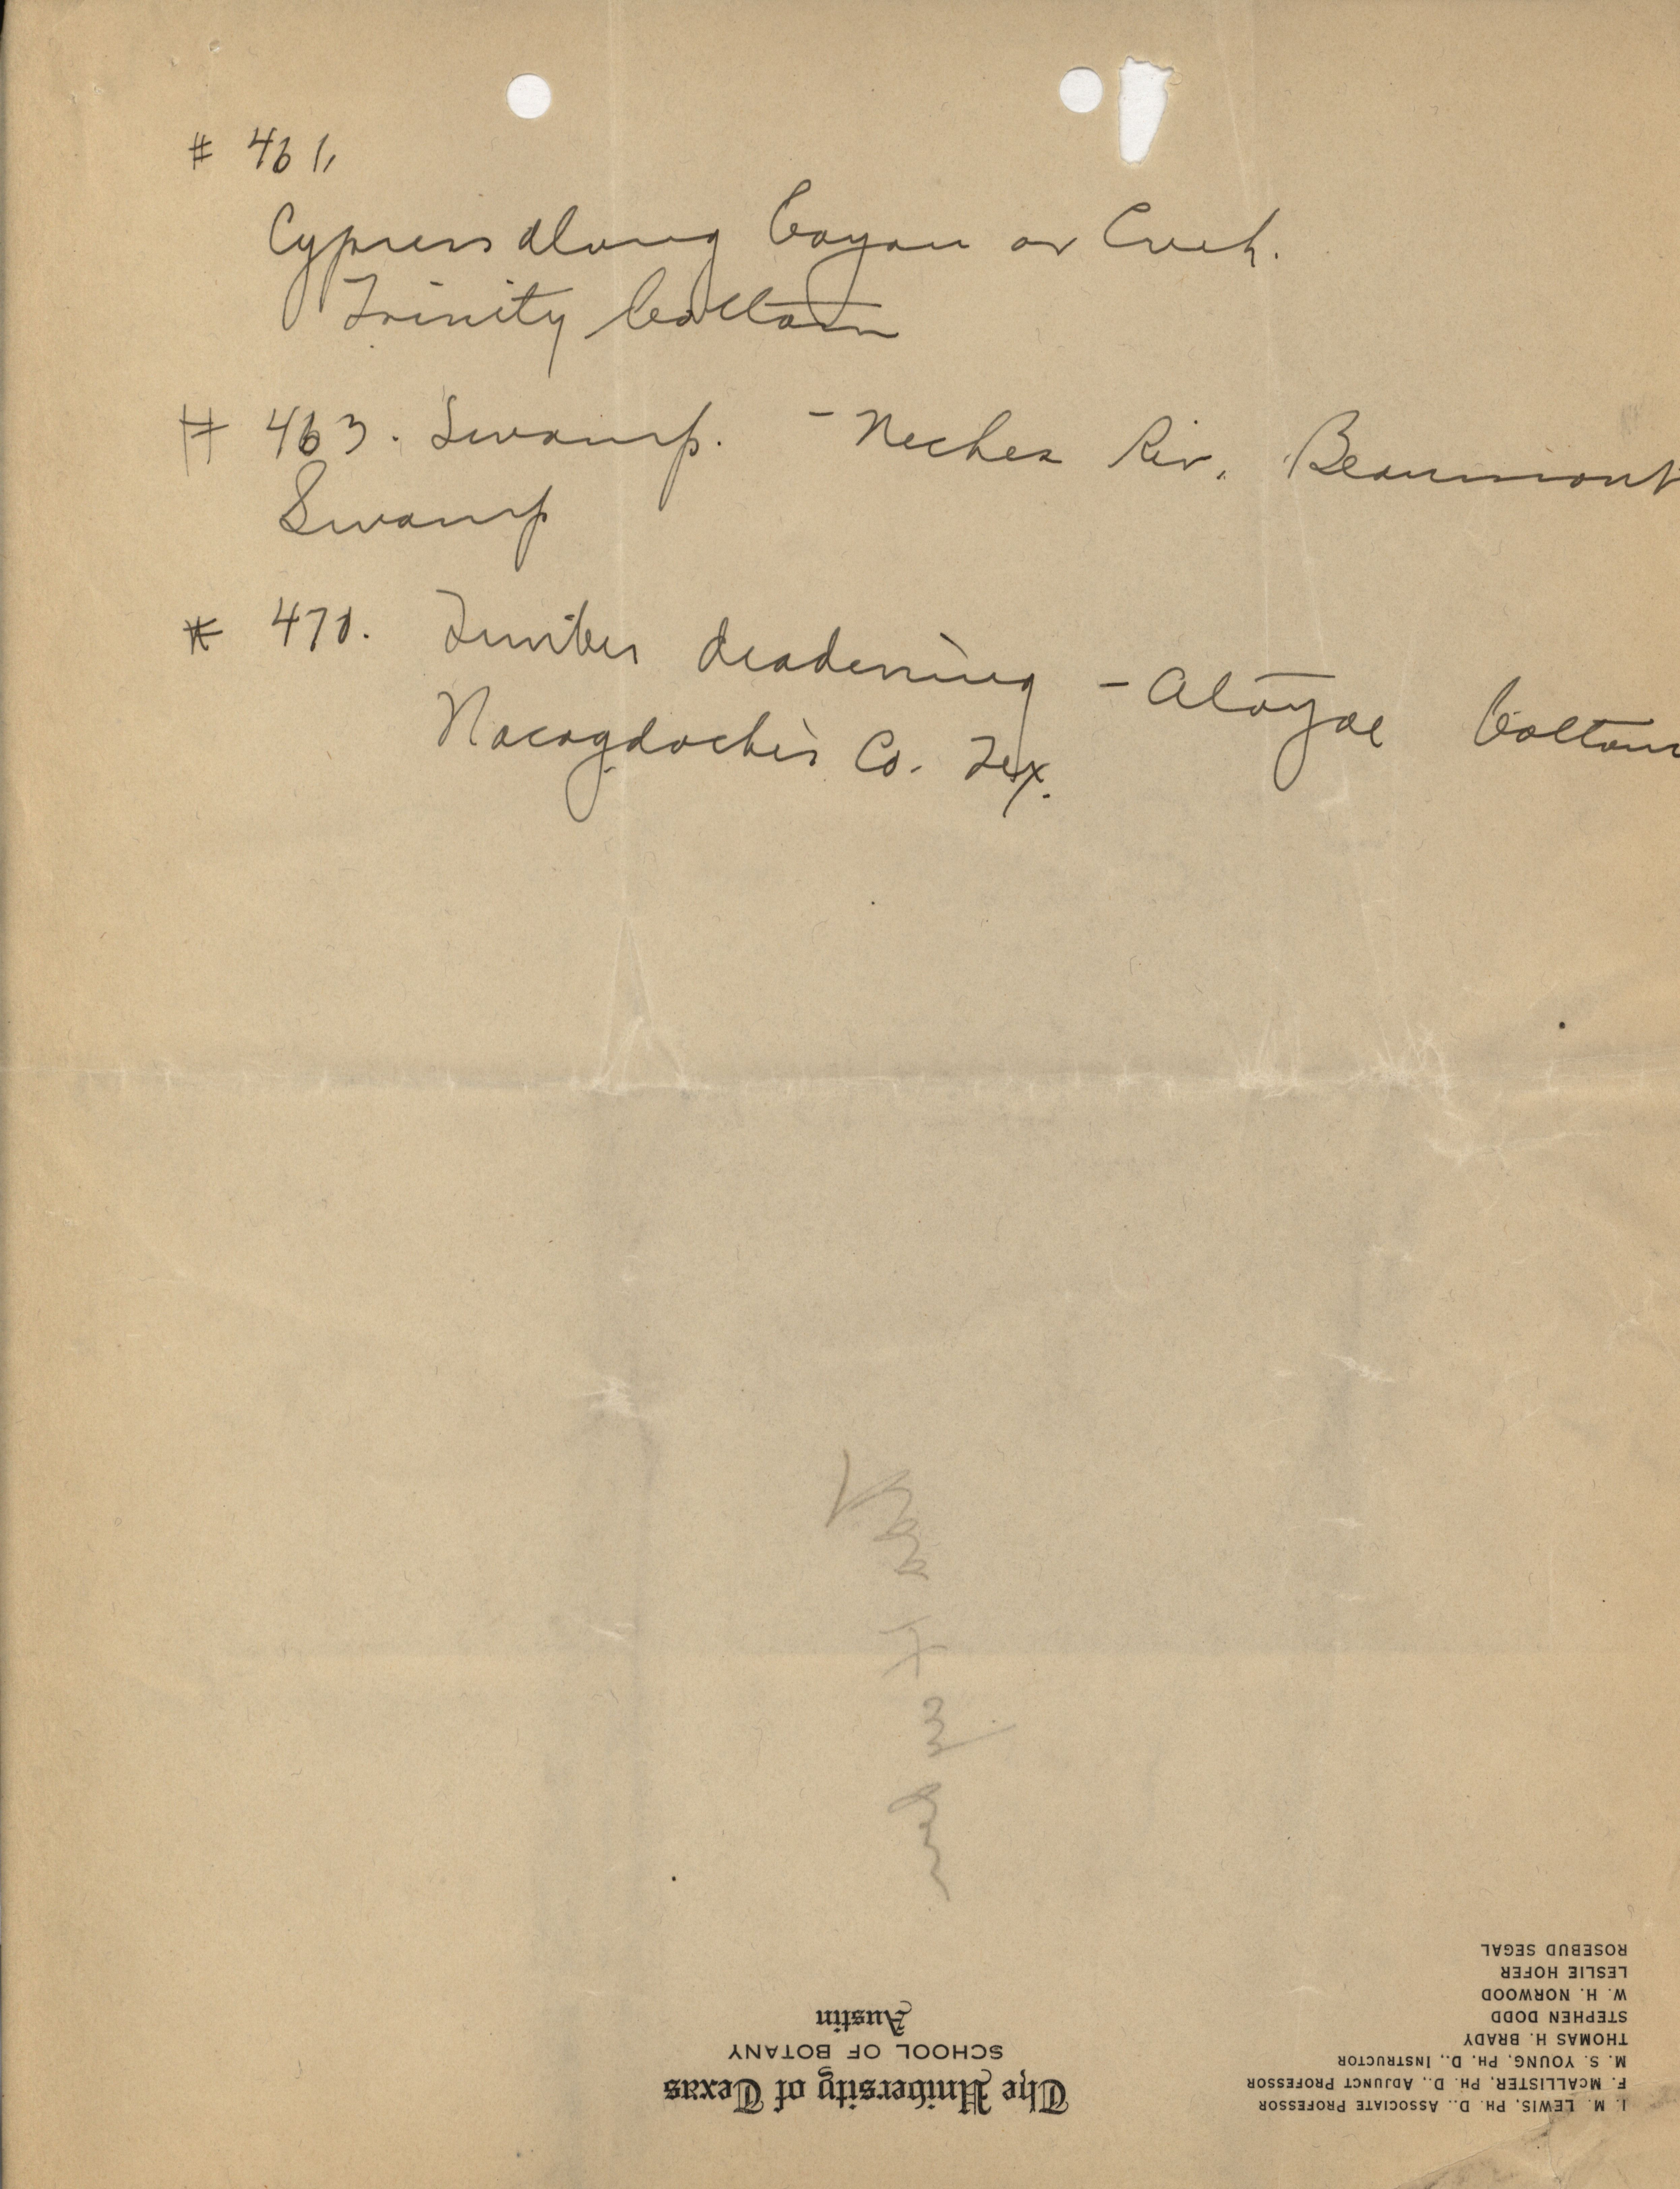 # 461,
Cypress along bayou or Creek.
Trinity bottom
# 463. Swamp. - Neches Riv. Beaumont
Swamp
# 470. Timber deadening - Atoyac bottom
Nacogdoches Co. Tex.
The University of Texas
SCHOOL OF BOTANY
Austin
I. M. LEWIS, PH. D., ASSOCIATE PROFESSOR
F. MCALLISTER, PH. D., ADJUNCT PROFESSOR
M. S. YOUNG, PH. D., INSTRUCTOR
THOMAS H. BRADY
STEPHEN DODD
W. H. NORWOOD
LESLIE HOFER
ROSEBUD SEGAL